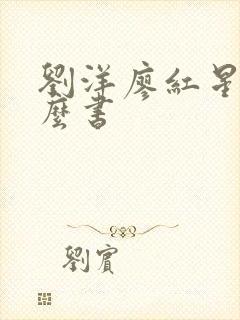 劉洋廖紅星
麼書
劉賓